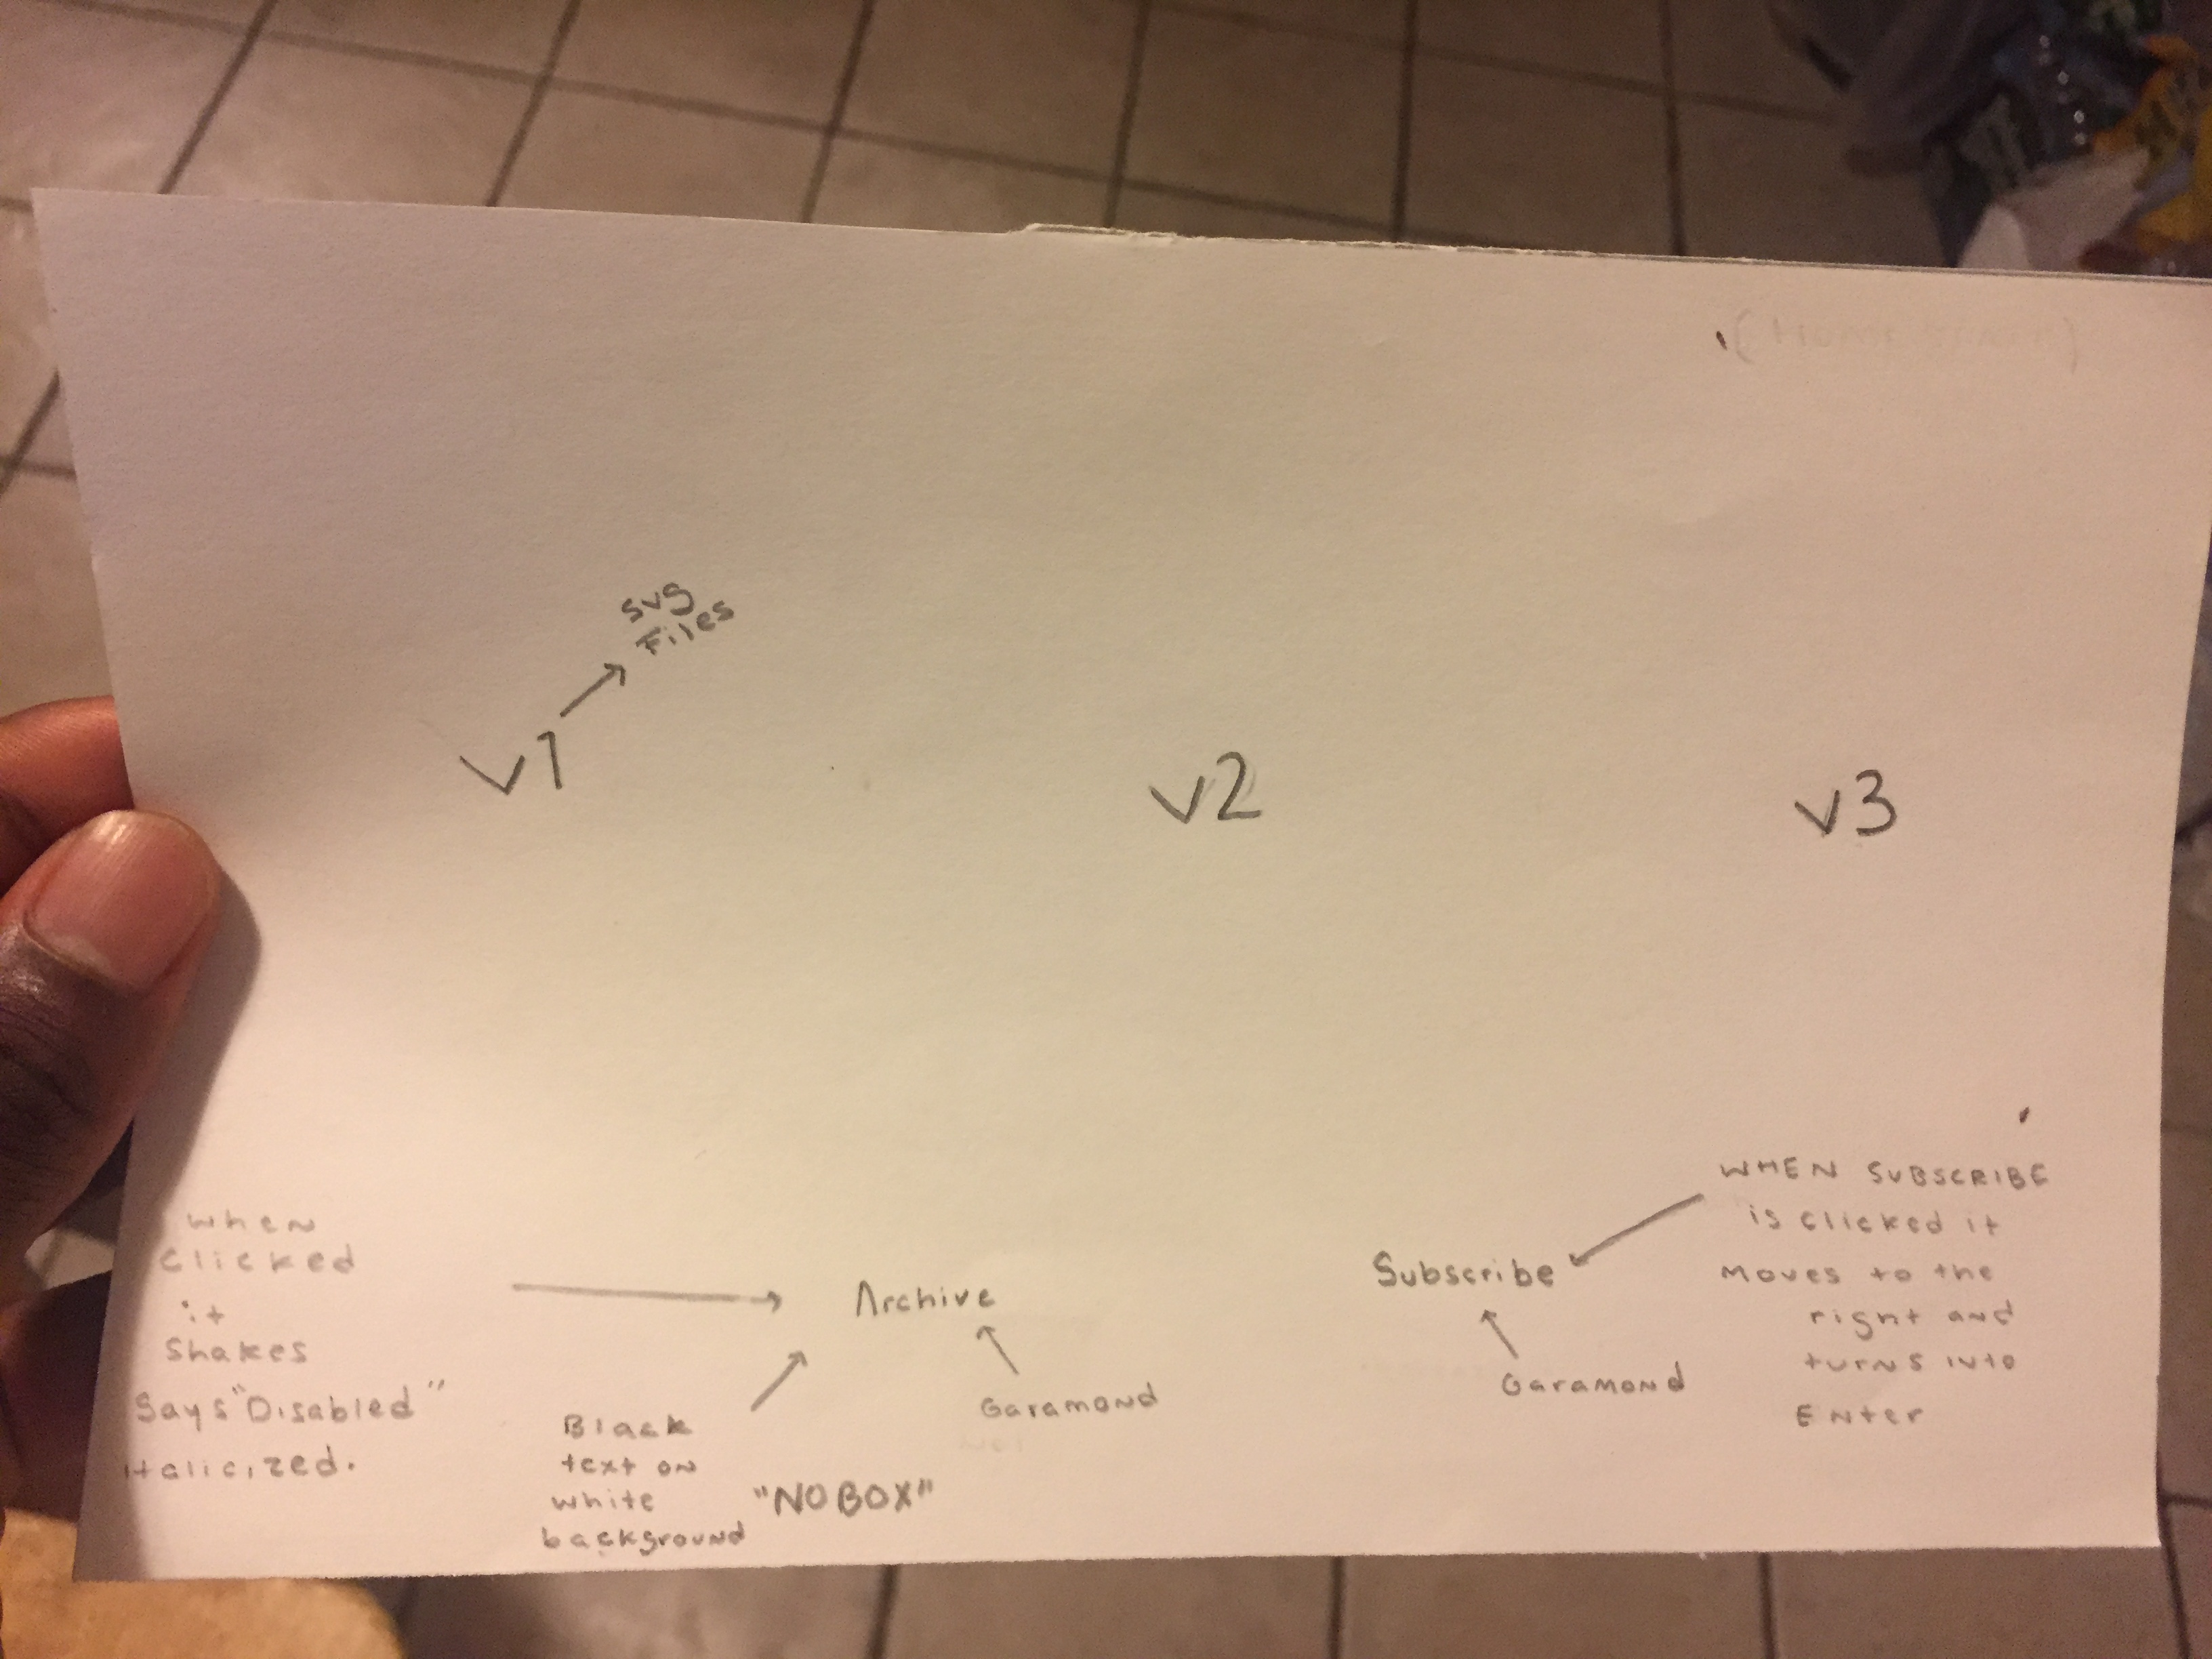 svg
Files
v1
v2
v3
when
clicked
it
shakes
says "Disabled"
italicized.
Archive
Garamond
Black
text on
white
background
"NO BOX"
Subscribe
Garamond
WHEN SUBSCRIBE
is clicked it
moves to the
right and
turns into
Enter